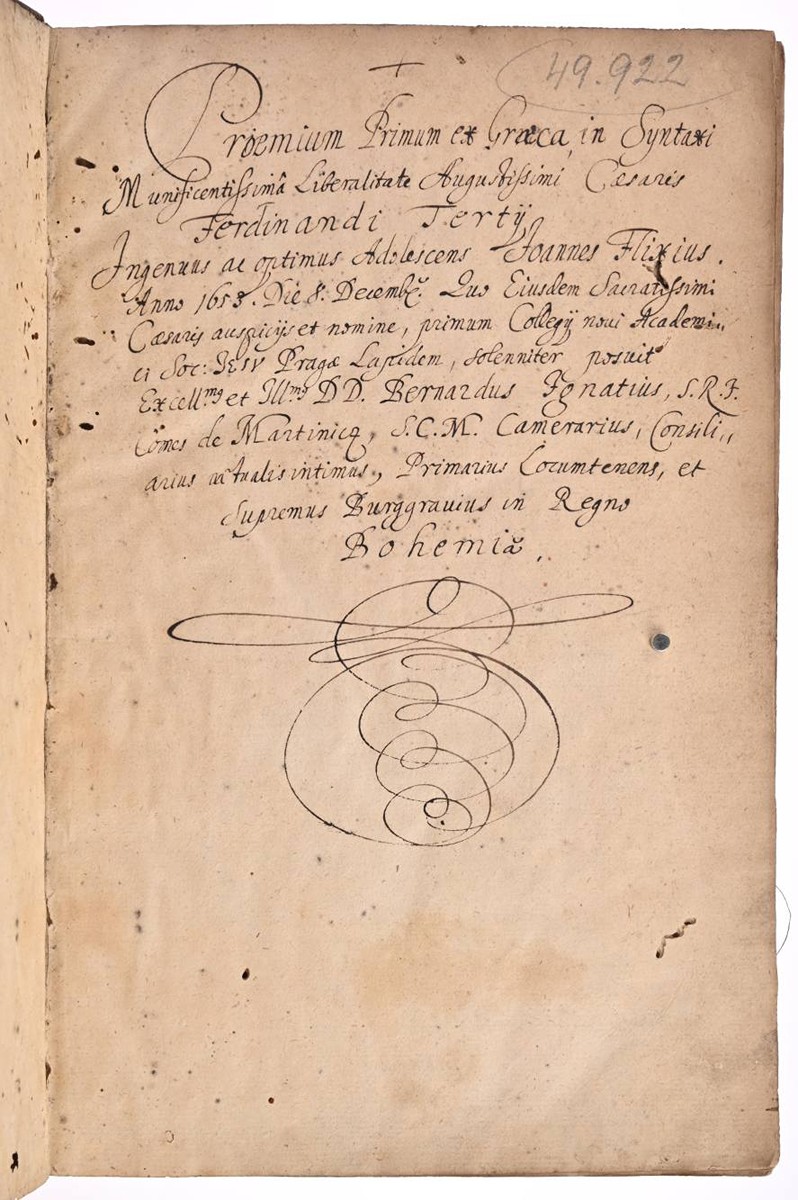 49.922
Prœmium Primum ex Græca in Syntaxi
Munificentissimâ Liberalitate Augustissimi Cæsaris
Ferdinandi Tertÿ
Ingenuus ac optimus Adolescens Joannes Flixius.
Anno 1653. Die 8. Decemb. Quo Eiusdem Sacratissimi
Cæsaris auspicijs et nomine, primum Collegÿ novi Academi„
ci Soc: IESV Pragæ Lapidem, solenniter posuit
Excell.mus et Ill.mus DD. Bernardus Ignatius, S.R.I.
Comes de Martinicz, S.C.M. Camerarius, Consili„
arius actualis intimus, Primarius Locumtenens, et
Supremus Burggravius in Regno
Bohemiæ.